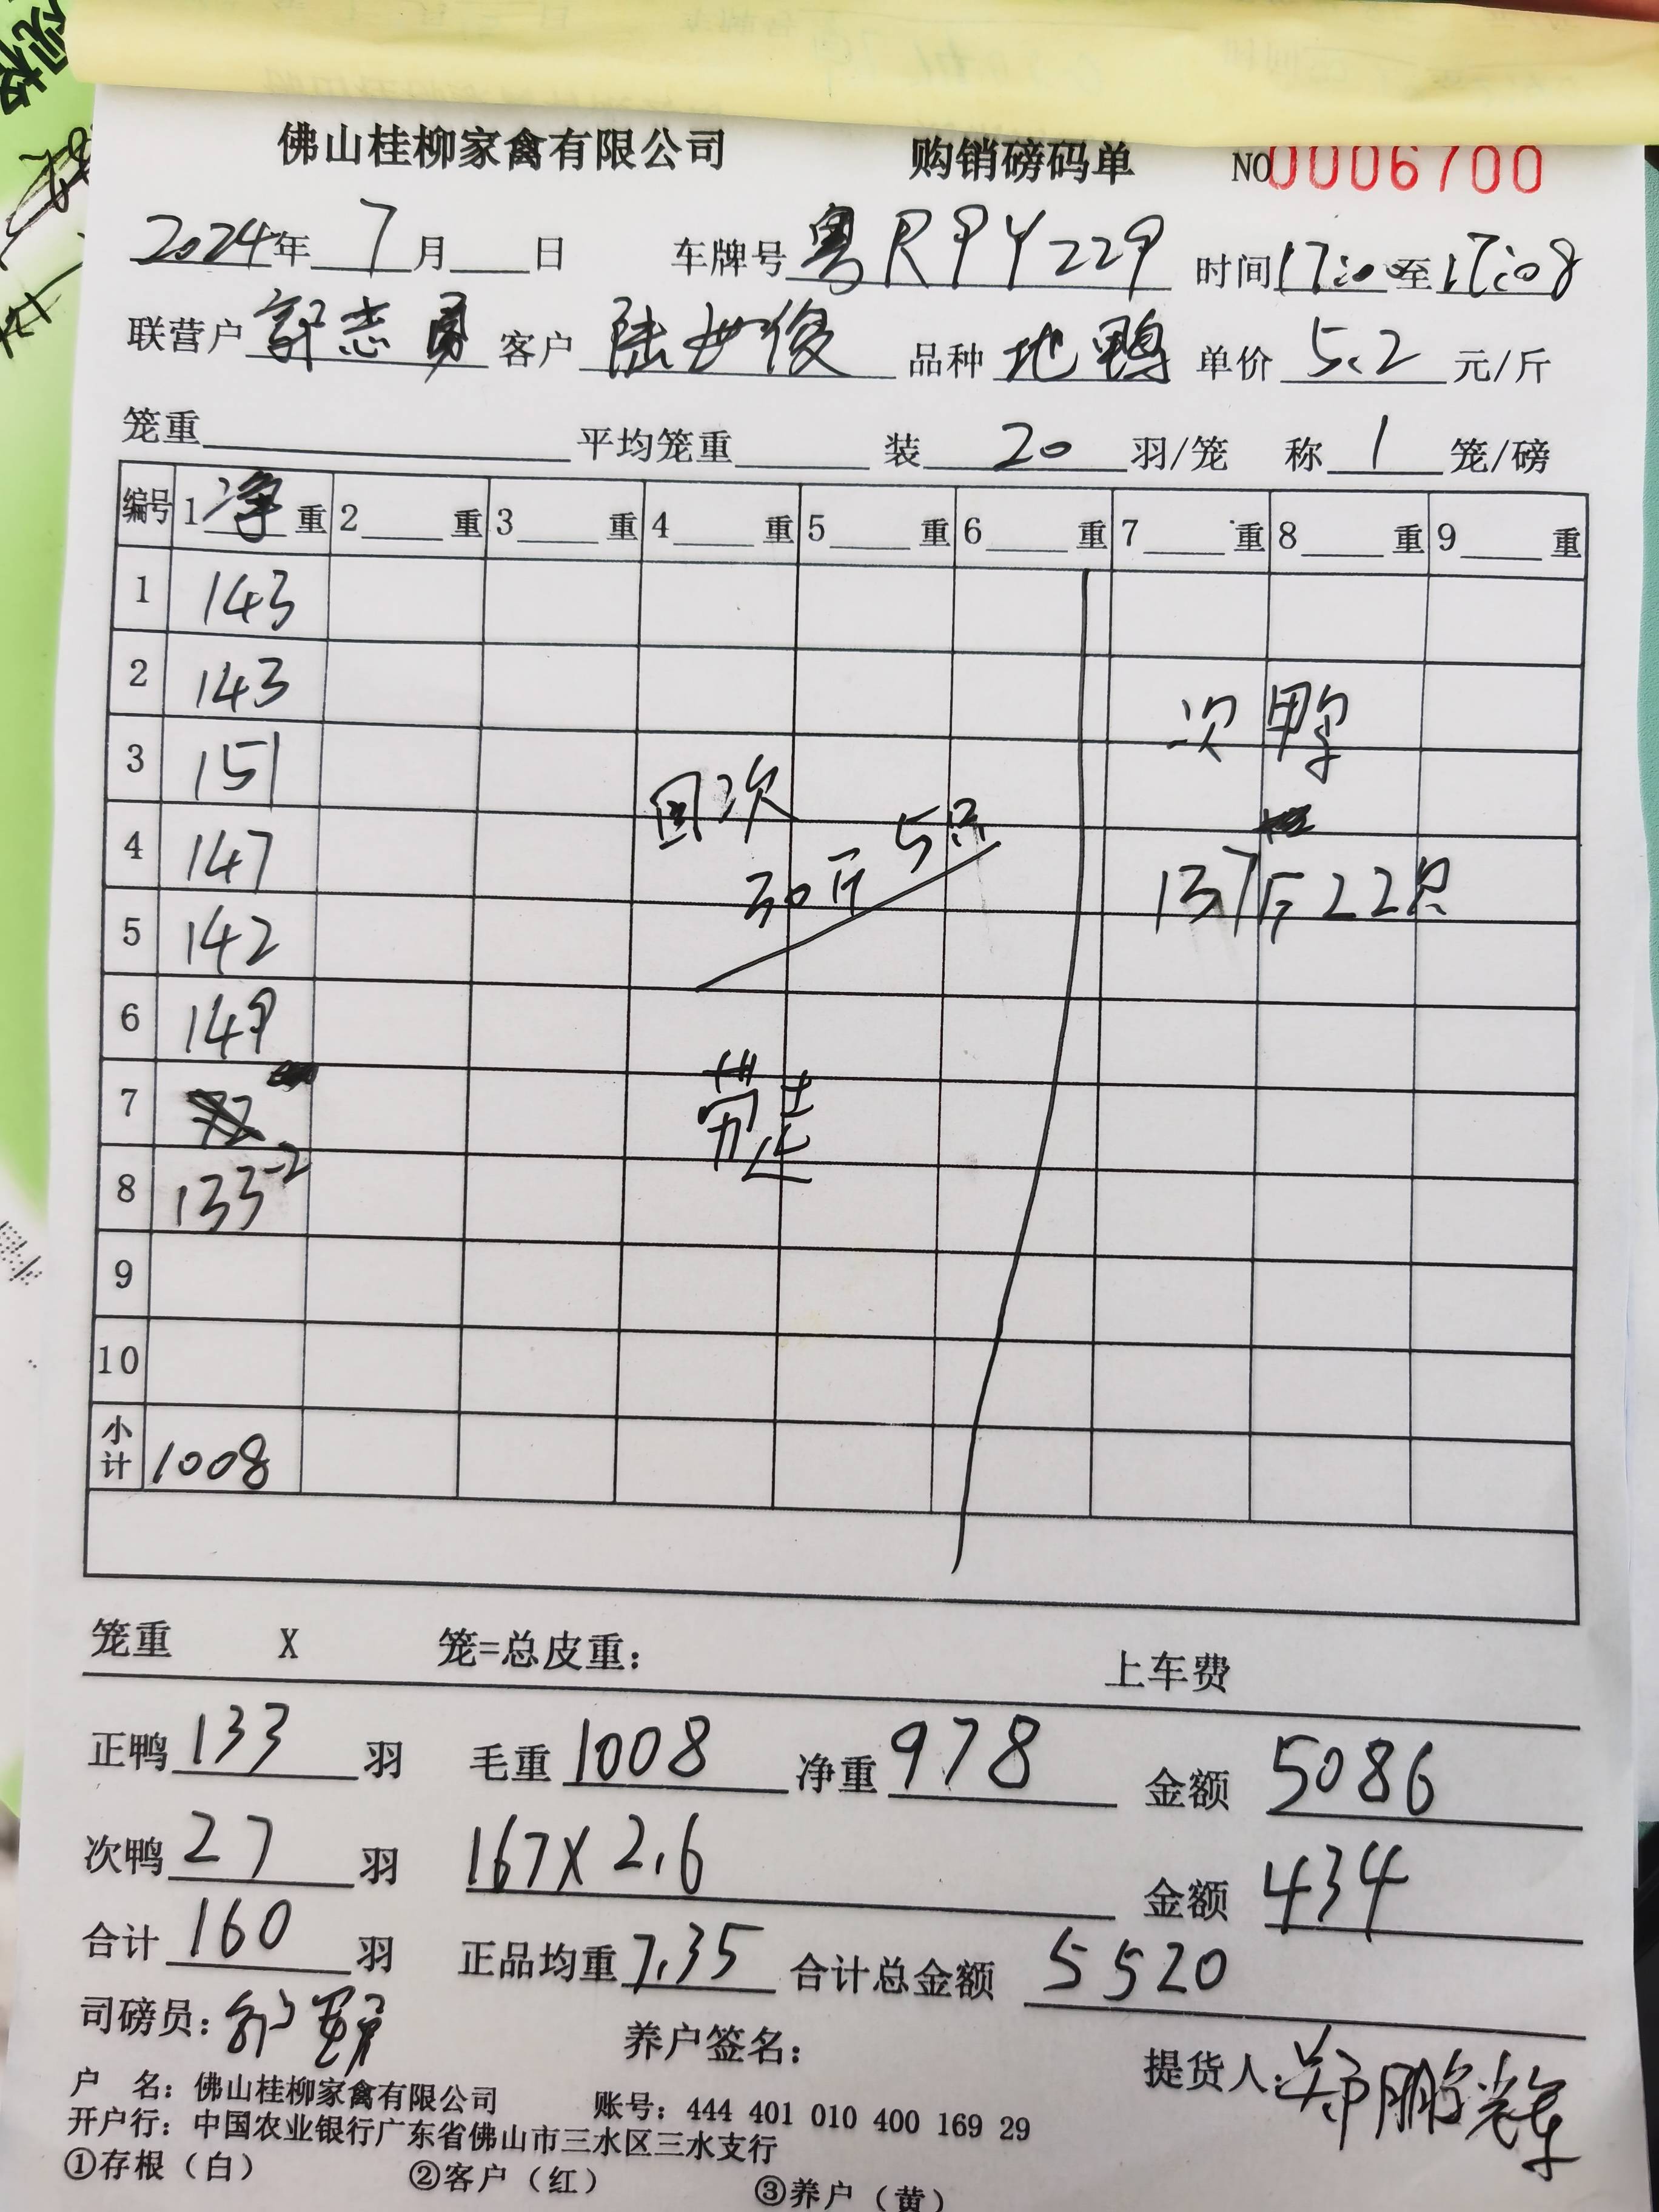 佛山桂柳家禽有限公司 购销磅码单 NO0006700
2024年 7月 日 车牌号 粤R9Y229 时间17:00至17:08
联营户 志 客户 陆世俊 品种 地鸭 单价 5.2 元/斤
笼重 平均笼重 装 20 羽/笼 称 1 笼/磅
编号 1净重 2 重 3 重 4 重 5 重 6 重 7 重 8 重 9 重
1 143
2 143
次鸭
3 151
回次
4 147
30斤 5只
137斤22只
5 142
6 149
7
带走
8 133-2
9
10
小计 1008
笼重 X 笼=总皮重: 上车费
正鸭 133 羽 毛重 1008 净重 978 金额 5086
次鸭 27 羽 167X2.6 金额 434
合计 160 羽 正品均重 7.35 合计总金额 5520
司磅员: 养户签名: 提货人: 郑鹏辉
户 名: 佛山桂柳家禽有限公司 账号: 444 401 010 400 169 29
开户行: 中国农业银行广东省佛山市三水区三水支行
①存根（白） ②客户（红） ③养户（黄）